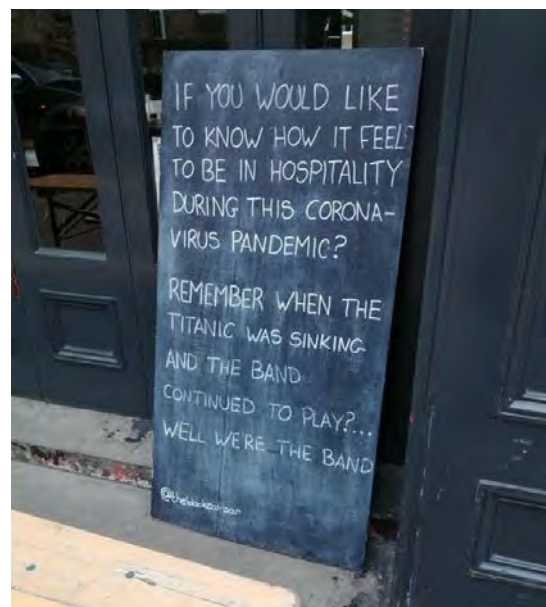 IF YOU WOULD LIKE
TO KNOW HOW IT FEELS
TO BE IN HOSPITALITY
DURING THIS CORONA-
VIRUS PANDEMIC?
REMEMBER WHEN THE
TITANIC WAS SINKING
AND THE BAND
CONTINUED TO PLAY?...
WELL WERE THE BAND